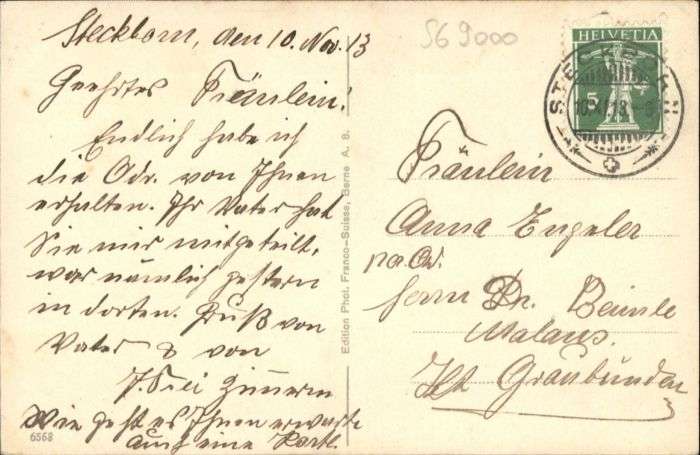 Steckborn, den 10. Nov. 13
Geehrtes Fräulein!
Endlich habe ich
die Adr. von Ihnen
erhalten. Ihr Vater hat
Sie mir mitgeteilt,
war nämlich gestern
in dorten. Gruß von
Vater & von
J. Frei
Wie geht es Ihnen erwarte
auch eine Karte
6568
Edition Phot. Franco-Suisse, Berne A. B.
569000
HELVETIA
5
STECKBORN
10.XI.13
Fräulein
Anna Engeler
Herrn Dr.
Malans.
Kt Graubünden